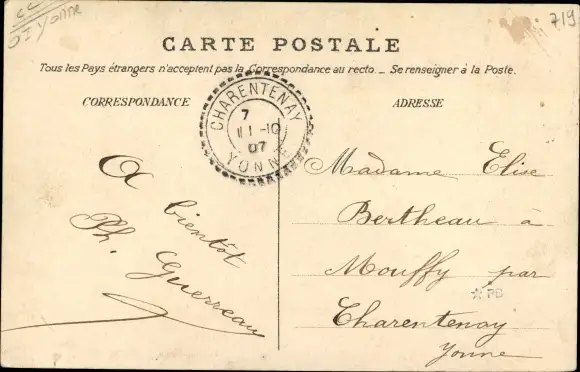 CC
07 Yonne
719
CARTE POSTALE
Tous les Pays étrangers n'acceptent pas la Correspondance au recto._ Se renseigner à la Poste.
CORRESPONDANCE
ADRESSE
CHARENTENAY
7
11 -10
07
YONNE
A bientôt
Ph. Guerreau
Madame Elise
Bertheau à
Mouffy par
Charentenay
Yonne
PB